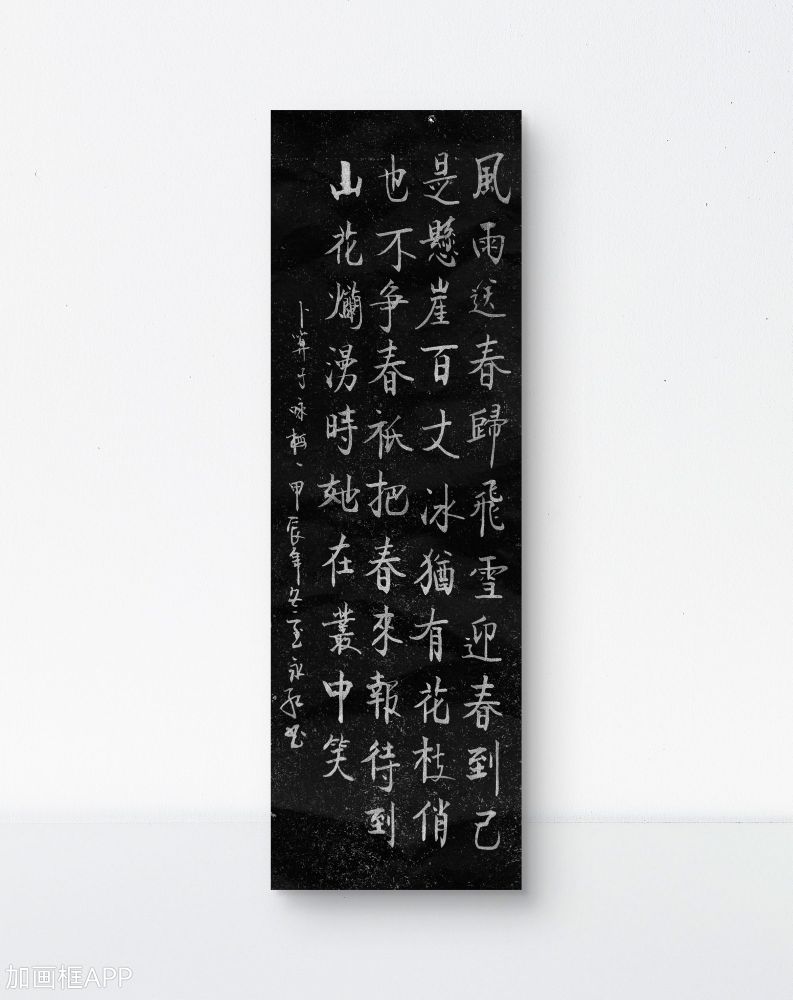 風雨送春歸飛雪迎春到已
是懸崖百丈冰猶有花枝俏
也不争春衹把春來報待到
山花爛漫時她在叢中笑
卜算子咏梅、甲辰年冬至永红书
加画框APP